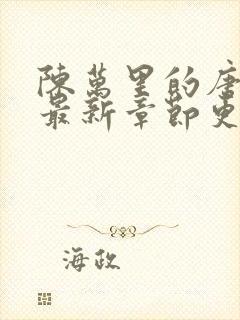 陳萬里的唐
最新章節更
海政